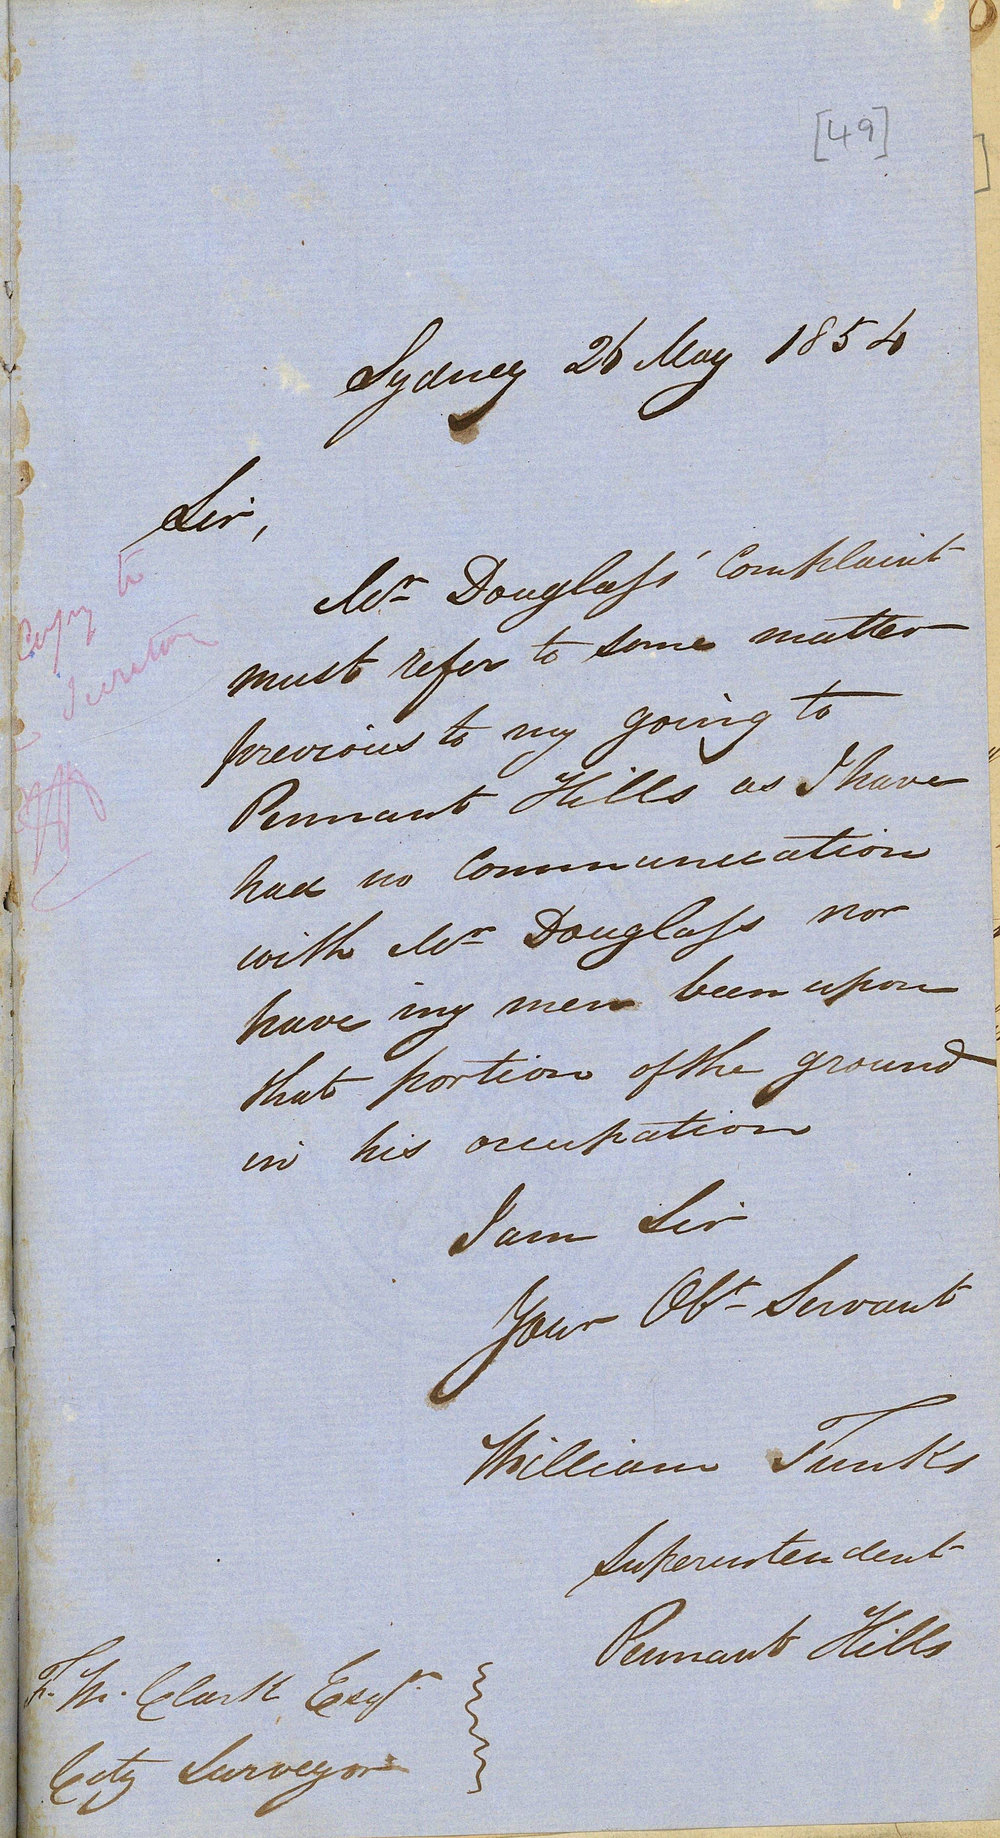 [49]
Sydney 26 May 1854
Sir,
Mr Douglass' Complaint
must refer to some matter
previous to my going to
Pennant Hills as I have
had no Communication
with Mr Douglass nor
have my men been upon
that portion of the ground
in his occupation
I am Sir
Your Obt Servant
William Tunks
Superintendent
Pennant Hills
F. W. Clark Esqr.
City Surveyor
Copy to